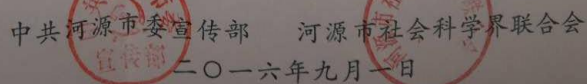 中共河源市委宣传部 河源市社会科学界联合会
宣传部
二〇一六年九月一日